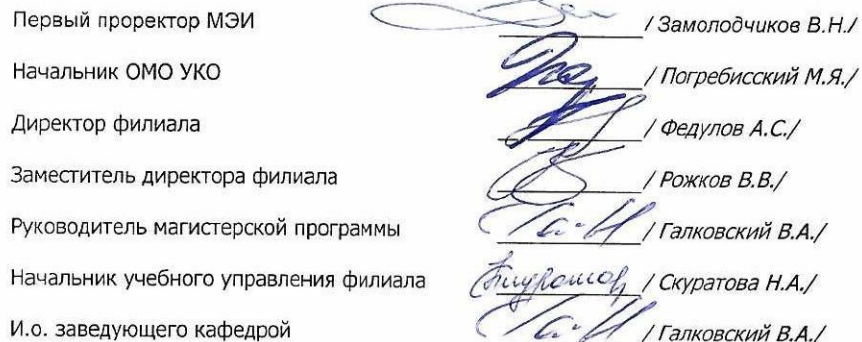 Первый проректор МЭИ / Замолодчиков В.Н./
Начальник ОМО УКО / Погребисский М.Я./
Директор филиала / Федулов А.С./
Заместитель директора филиала / Рожков В.В./
Руководитель магистерской программы / Галковский В.А./
Начальник учебного управления филиала / Скуратова Н.А./
И.о. заведующего кафедрой / Галковский В.А./